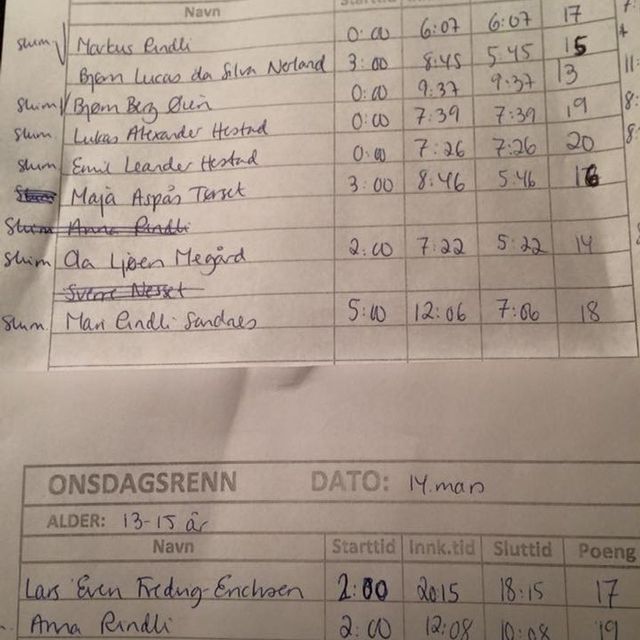 Navn
slum Markus Rindli 0:00 6:07 6:07 17
Bjørn Lucas da Silva Norland 3:00 8:45 5:45 15
slum Bjørn Berg Øien 0:00 9:37 9:37 13
slum Lukas Alexander Hestad 0:00 7:39 7:39 19
slum Emil Leander Hestad 0:00 7:26 7:26 20
Maja Aspås Tørset 3:00 8:46 5:46 16
Slum Anna Rindli
slum Ola Ljøen Megård 2:00 7:22 5:22 14
Sverre Nesset
slum Mari Rindli Sandnes 5:00 12:06 7:06 18
ONSDAGSRENN DATO: 14. mars
ALDER: 13-15 år
Navn Starttid Innk.tid Sluttid Poeng
Lars Even 2:00 20:15 18:15 17
Anna Rindli 2:00 12:08 10:08 19